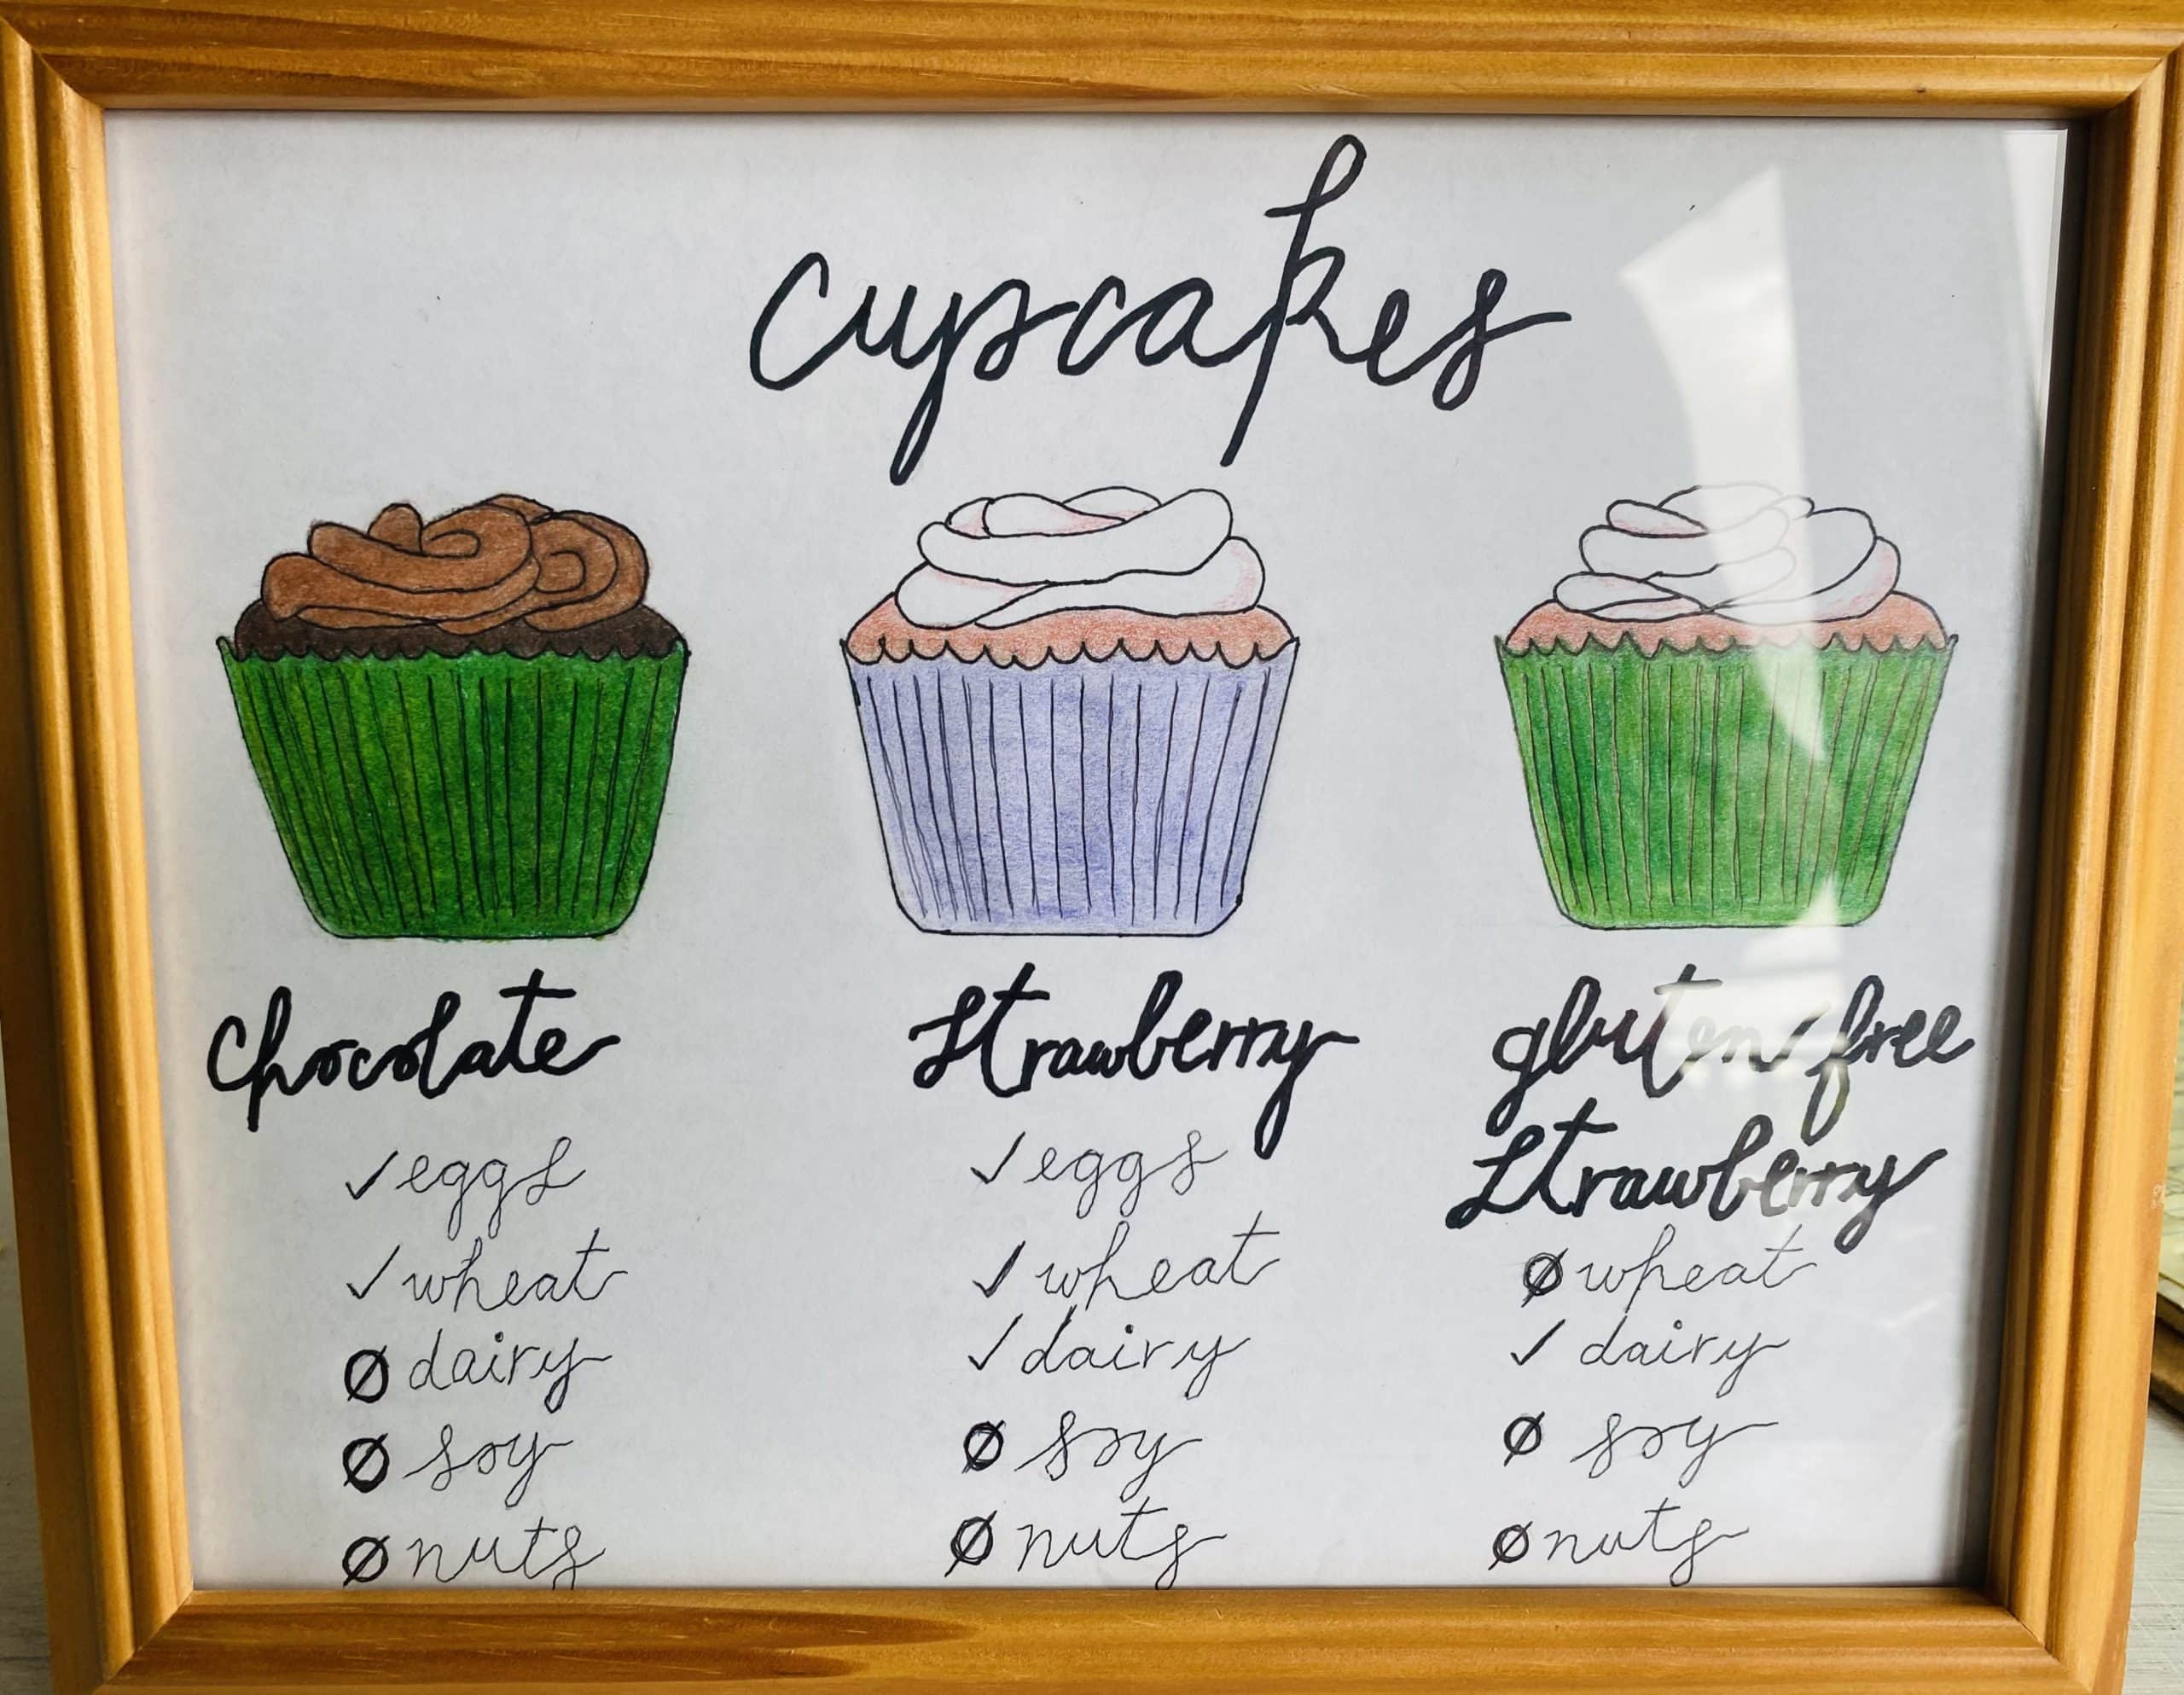 cupcakes
chocolate
✓ eggs
✓ wheat
Ø dairy
Ø soy
Ø nuts
strawberry
✓ eggs
✓ wheat
✓ dairy
Ø soy
Ø nuts
gluten free
strawberry
Ø wheat
✓ dairy
Ø soy
Ø nuts